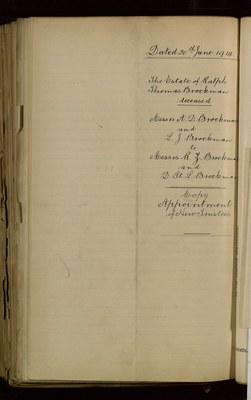 Dated 20th June 1910
The Estate of Ralph
Thomas Brockman
deceased
Messrs A. D. Brockman
and
L. J. Brockman
to
Messrs R. Brockman
and
D. St. L. Brockman
Copy
Appointment
of New Trustees